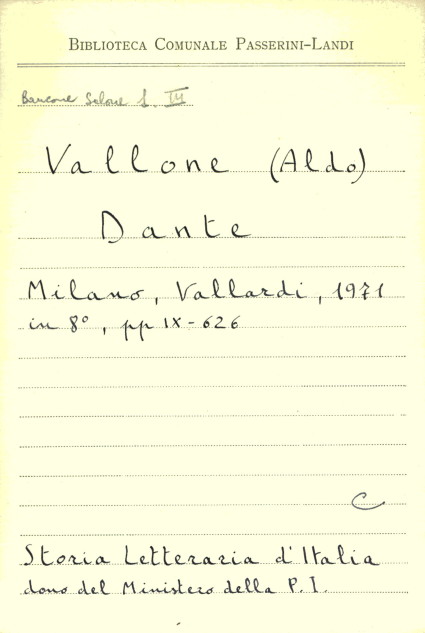 BIBLIOTECA COMUNALE PASSERINI-LANDI
Bancone Salone S. IV
Vallone (Aldo)
Dante
Milano, Vallardi, 1971
in 8°, pp IX-626
C
Storia Letteraria d'Italia
dono del Ministero della P.I.